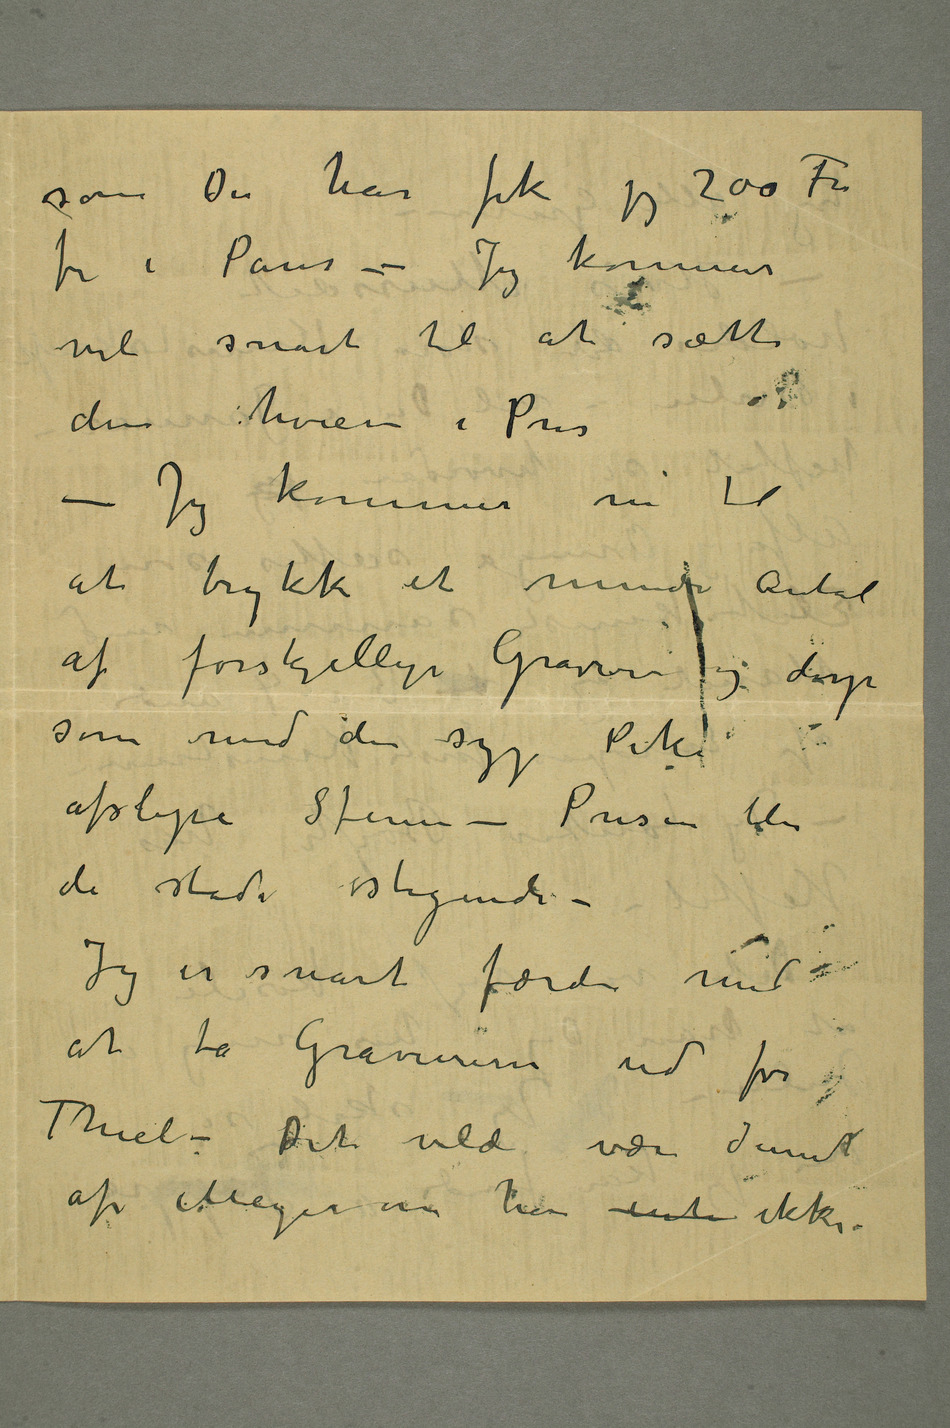 som Du har fik jeg 200 Fr
for i Paris – Jeg kommer
vel snart til at sætte
dem høiere i Pris
– Jeg kommer nu til
at trykke et mindre Antal
af forskjellige Gravurer og derpå
som med den syge Pike
afslipe Stenen – Prisen blir
da stadi stigende –
Jeg er snart færdi med
at ta Gravurerne ud for
Thiel – Det vilde være dumt
af Meyer om han ikke